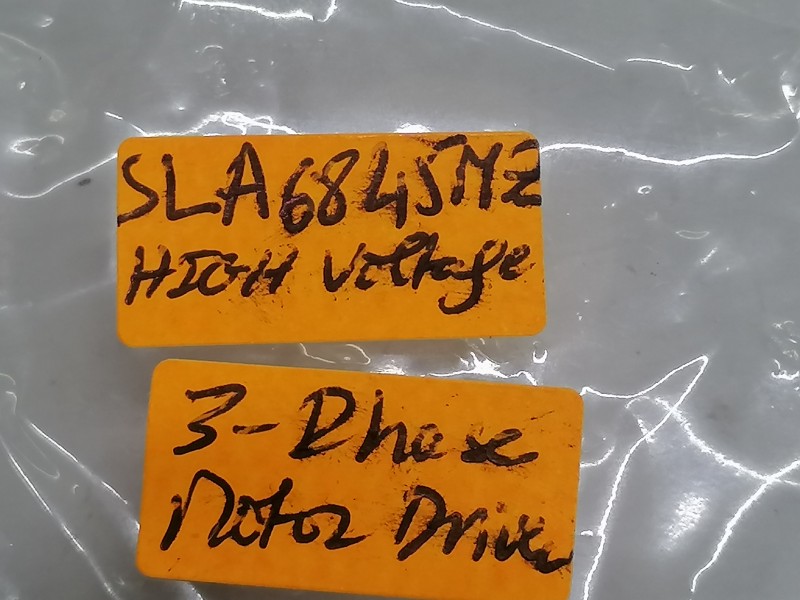 SLA6845MZ
HIGH Voltage
3-Phase
Motor Driver